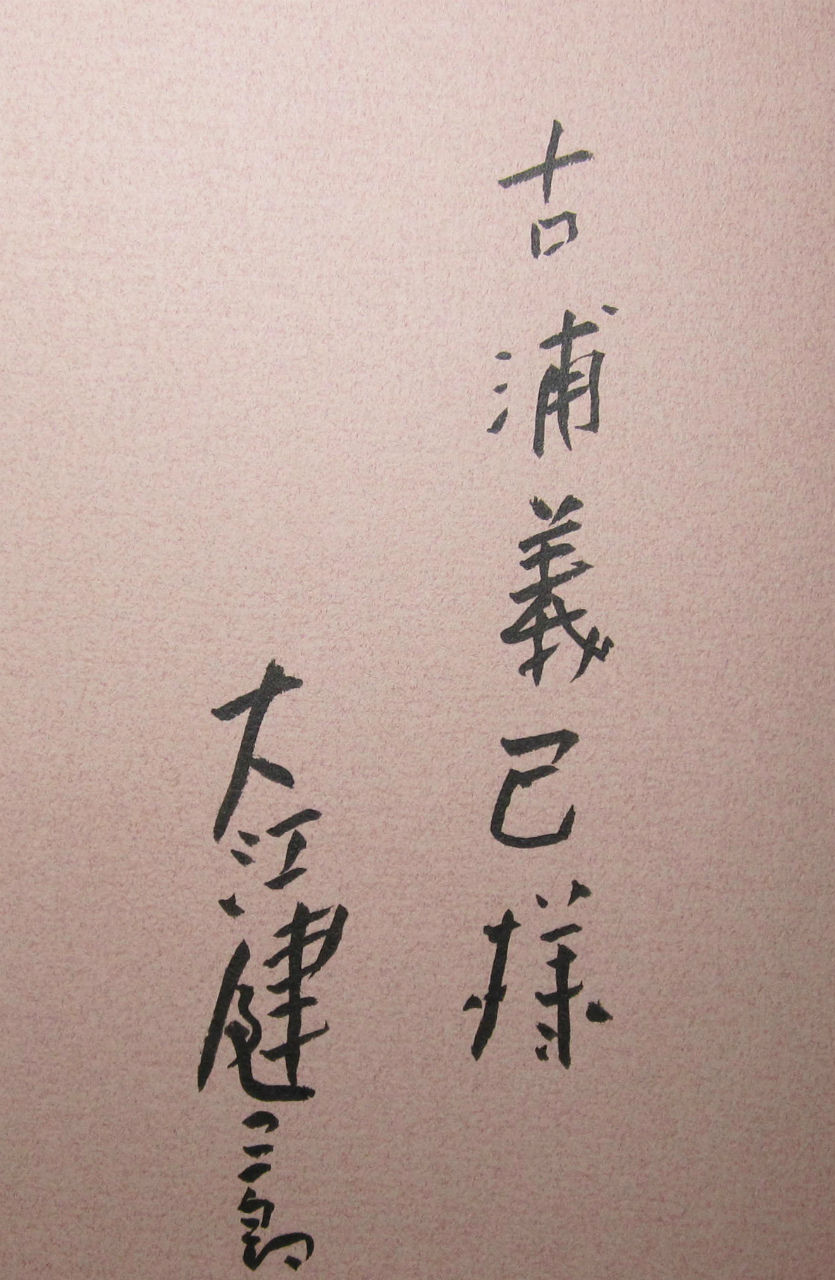 古浦義己様
大江健三郎